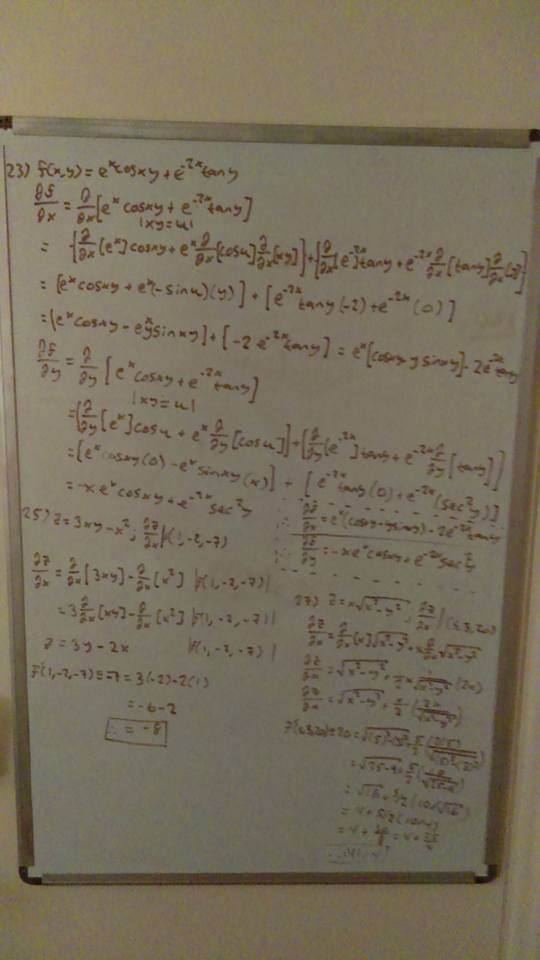 23) f(x,y) = e^x cosxy + e^-2x tany
∂f/∂x = ∂/∂x [e^x cosxy + e^-2x tany]
|xy = u|
= [∂/∂x [e^x] cosxy + e^x ∂/∂x [cosu] ∂/∂x [xy]] + [∂/∂x [e^-2x] tany + e^-2x ∂/∂x [tany] ∂/∂x
= [e^x cosxy + e^x (-sinu)(y)] + [e^-2x tany (-2) + e^-2x (0)]
= [e^x cosxy - e^x y sinxy] + [-2e^-2x tany] = e^x [cosxy - y sinxy] - 2e^-2x tany
∂f/∂y = ∂/∂y [e^x cosxy + e^-2x tany]
|xy = u|
= [∂/∂y [e^x] cosu + e^x ∂/∂y [cosu]] + [∂/∂y [e^-2x] tany + e^-2x ∂/∂y [tany]]
= [e^x cosxy (0) - e^x sinxy (x)] + [e^-2x tany (0) + e^-2x (sec^2 y)]
= -x e^x cosxy + e^-2x sec^2 y
= e^x (cosxy - y sinxy) - 2e^-2x tany
= -x e^x cosxy + e^-2x sec^2 y
25) z = 3xy - x^2 ; ∂z/∂x | (1, -2, -7)
∂z/∂x = ∂/∂x [3xy] - ∂/∂x [x^2] |f(1, -2, -7)|
= 3 ∂/∂x [xy] - ∂/∂x [x^2] |f(1, -2, -7)|
z = 3y - 2x |f(1, -2, -7)|
f'(1, -2, -7) = -7 = 3(-2) - 2(1)
= -6 - 2
∴ = -8
27) z = x√x^2 - y^2 ; ∂z/∂x | (5, 3, 20)
∂z/∂x = ∂/∂x [x] √x^2 - y^2 + x ∂/∂x √x^2 - y^2
∂z/∂x = √x^2 - y^2 + x/2 (2x)
∂z/∂x = √x^2 - y^2 + x/2
= √25 - 9 + 5/2
= √16 + 5/2 (10
= 4 + 5/2 (10
= 4 +